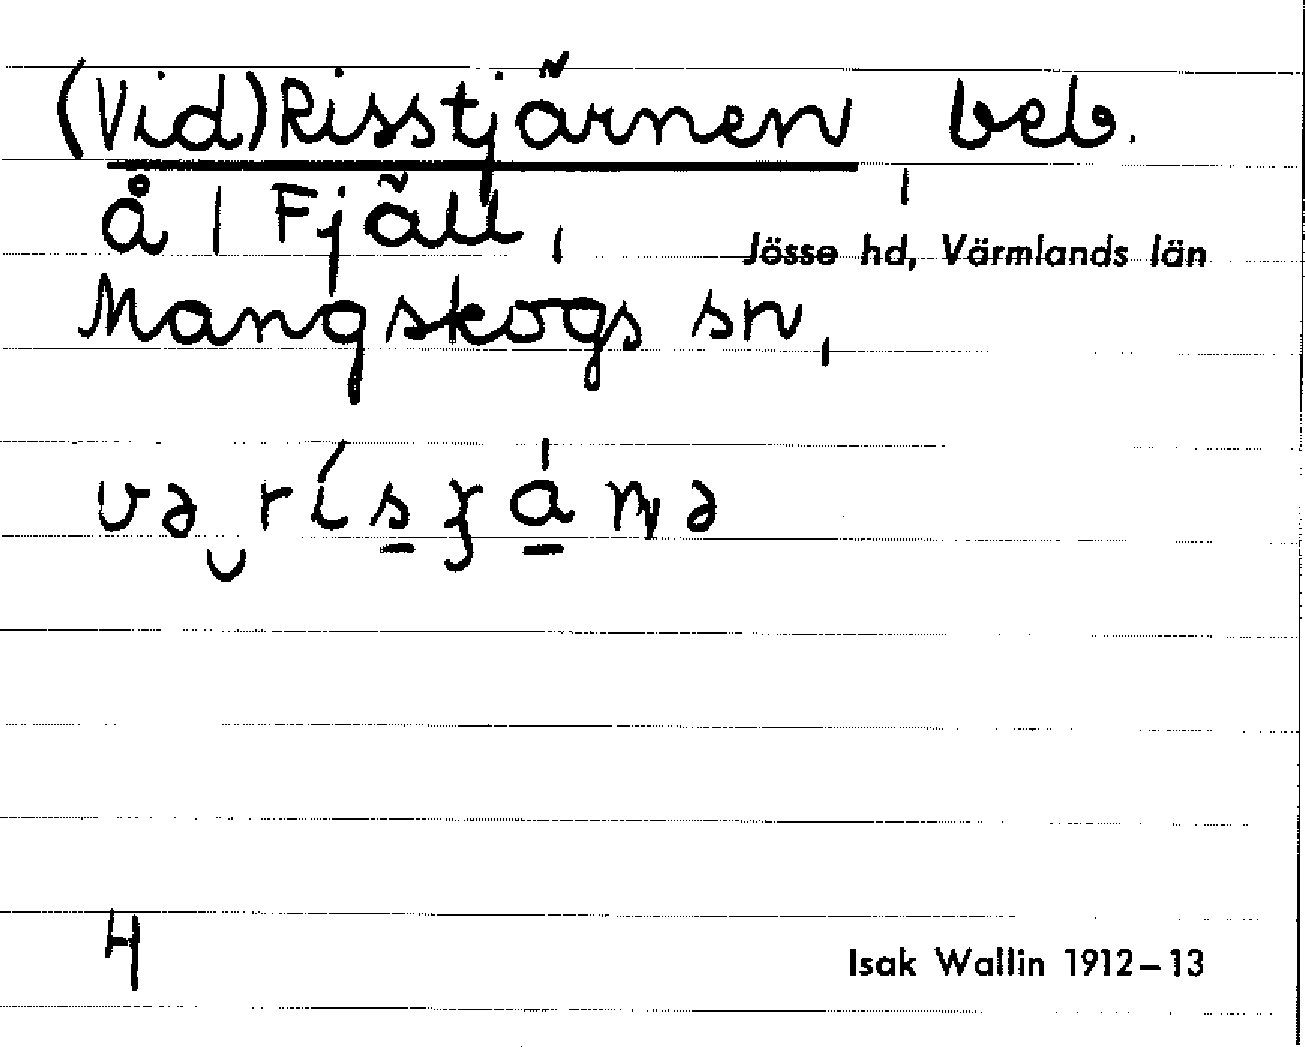 (Vid) Risstjärnen, beb.
å | Fjäll,
Jösse hd, Värmlands län
Mangskogs sn,
4
Isak Wallin 1912–13